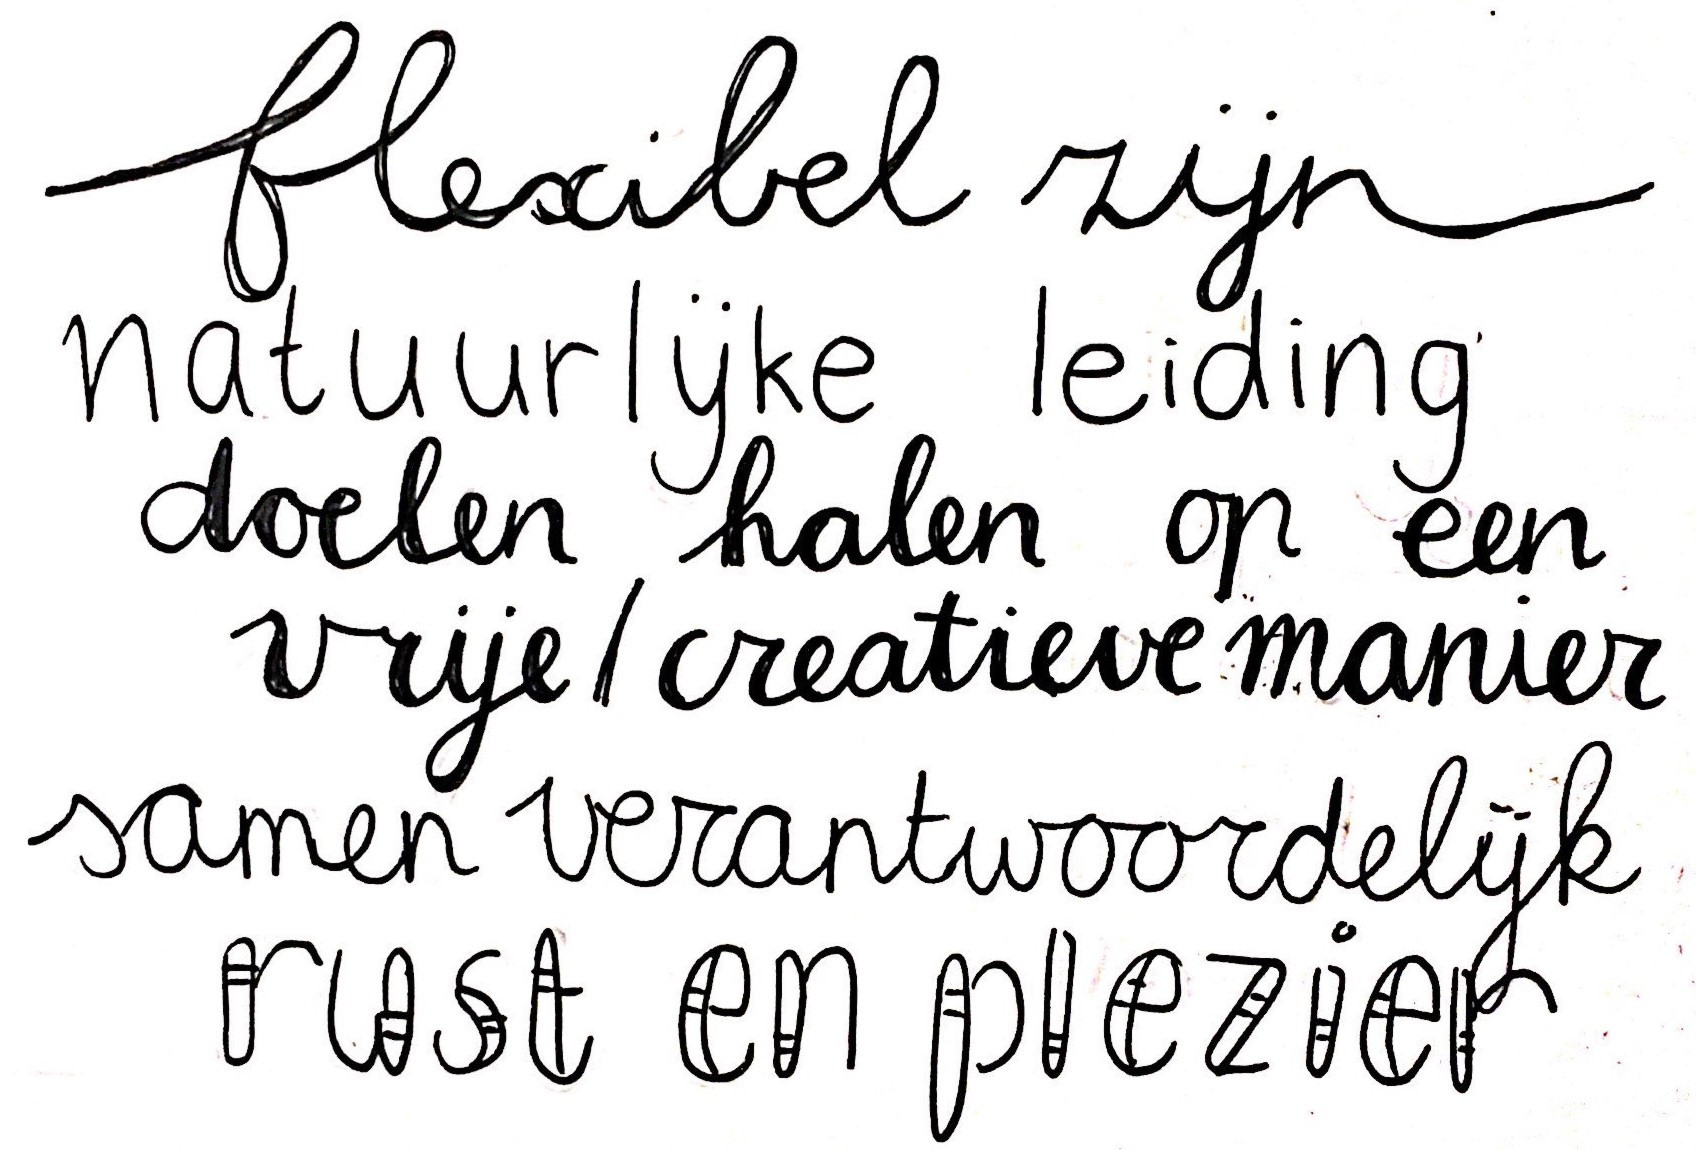 flexibel zijn
natuurlijke leiding
doelen halen op een
vrije/creatieve manier
samen verantwoordelijk
rust en plezier